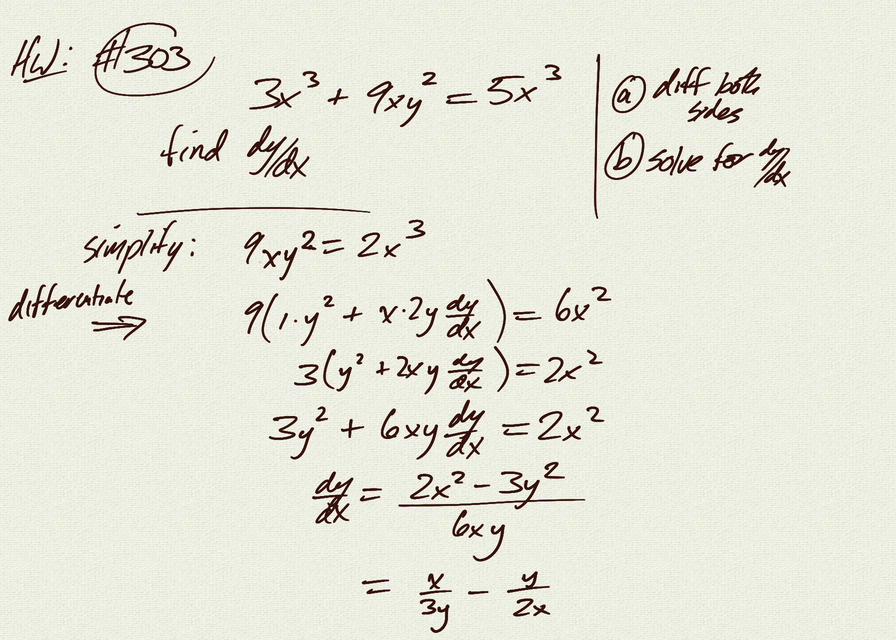 HW: #303
3x³ + 9xy² = 5x³
find dy/dx
ⓐ diff both
sides
ⓑ solve for dy/dx
simplify: 9xy² = 2x³
differentiate ⇒ 9(1·y² + x·2y dy/dx) = 6x²
3(y² + 2xy dy/dx) = 2x²
3y² + 6xy dy/dx = 2x²
dy/dx = (2x² − 3y²)/(6xy)
= x/3y − y/2x